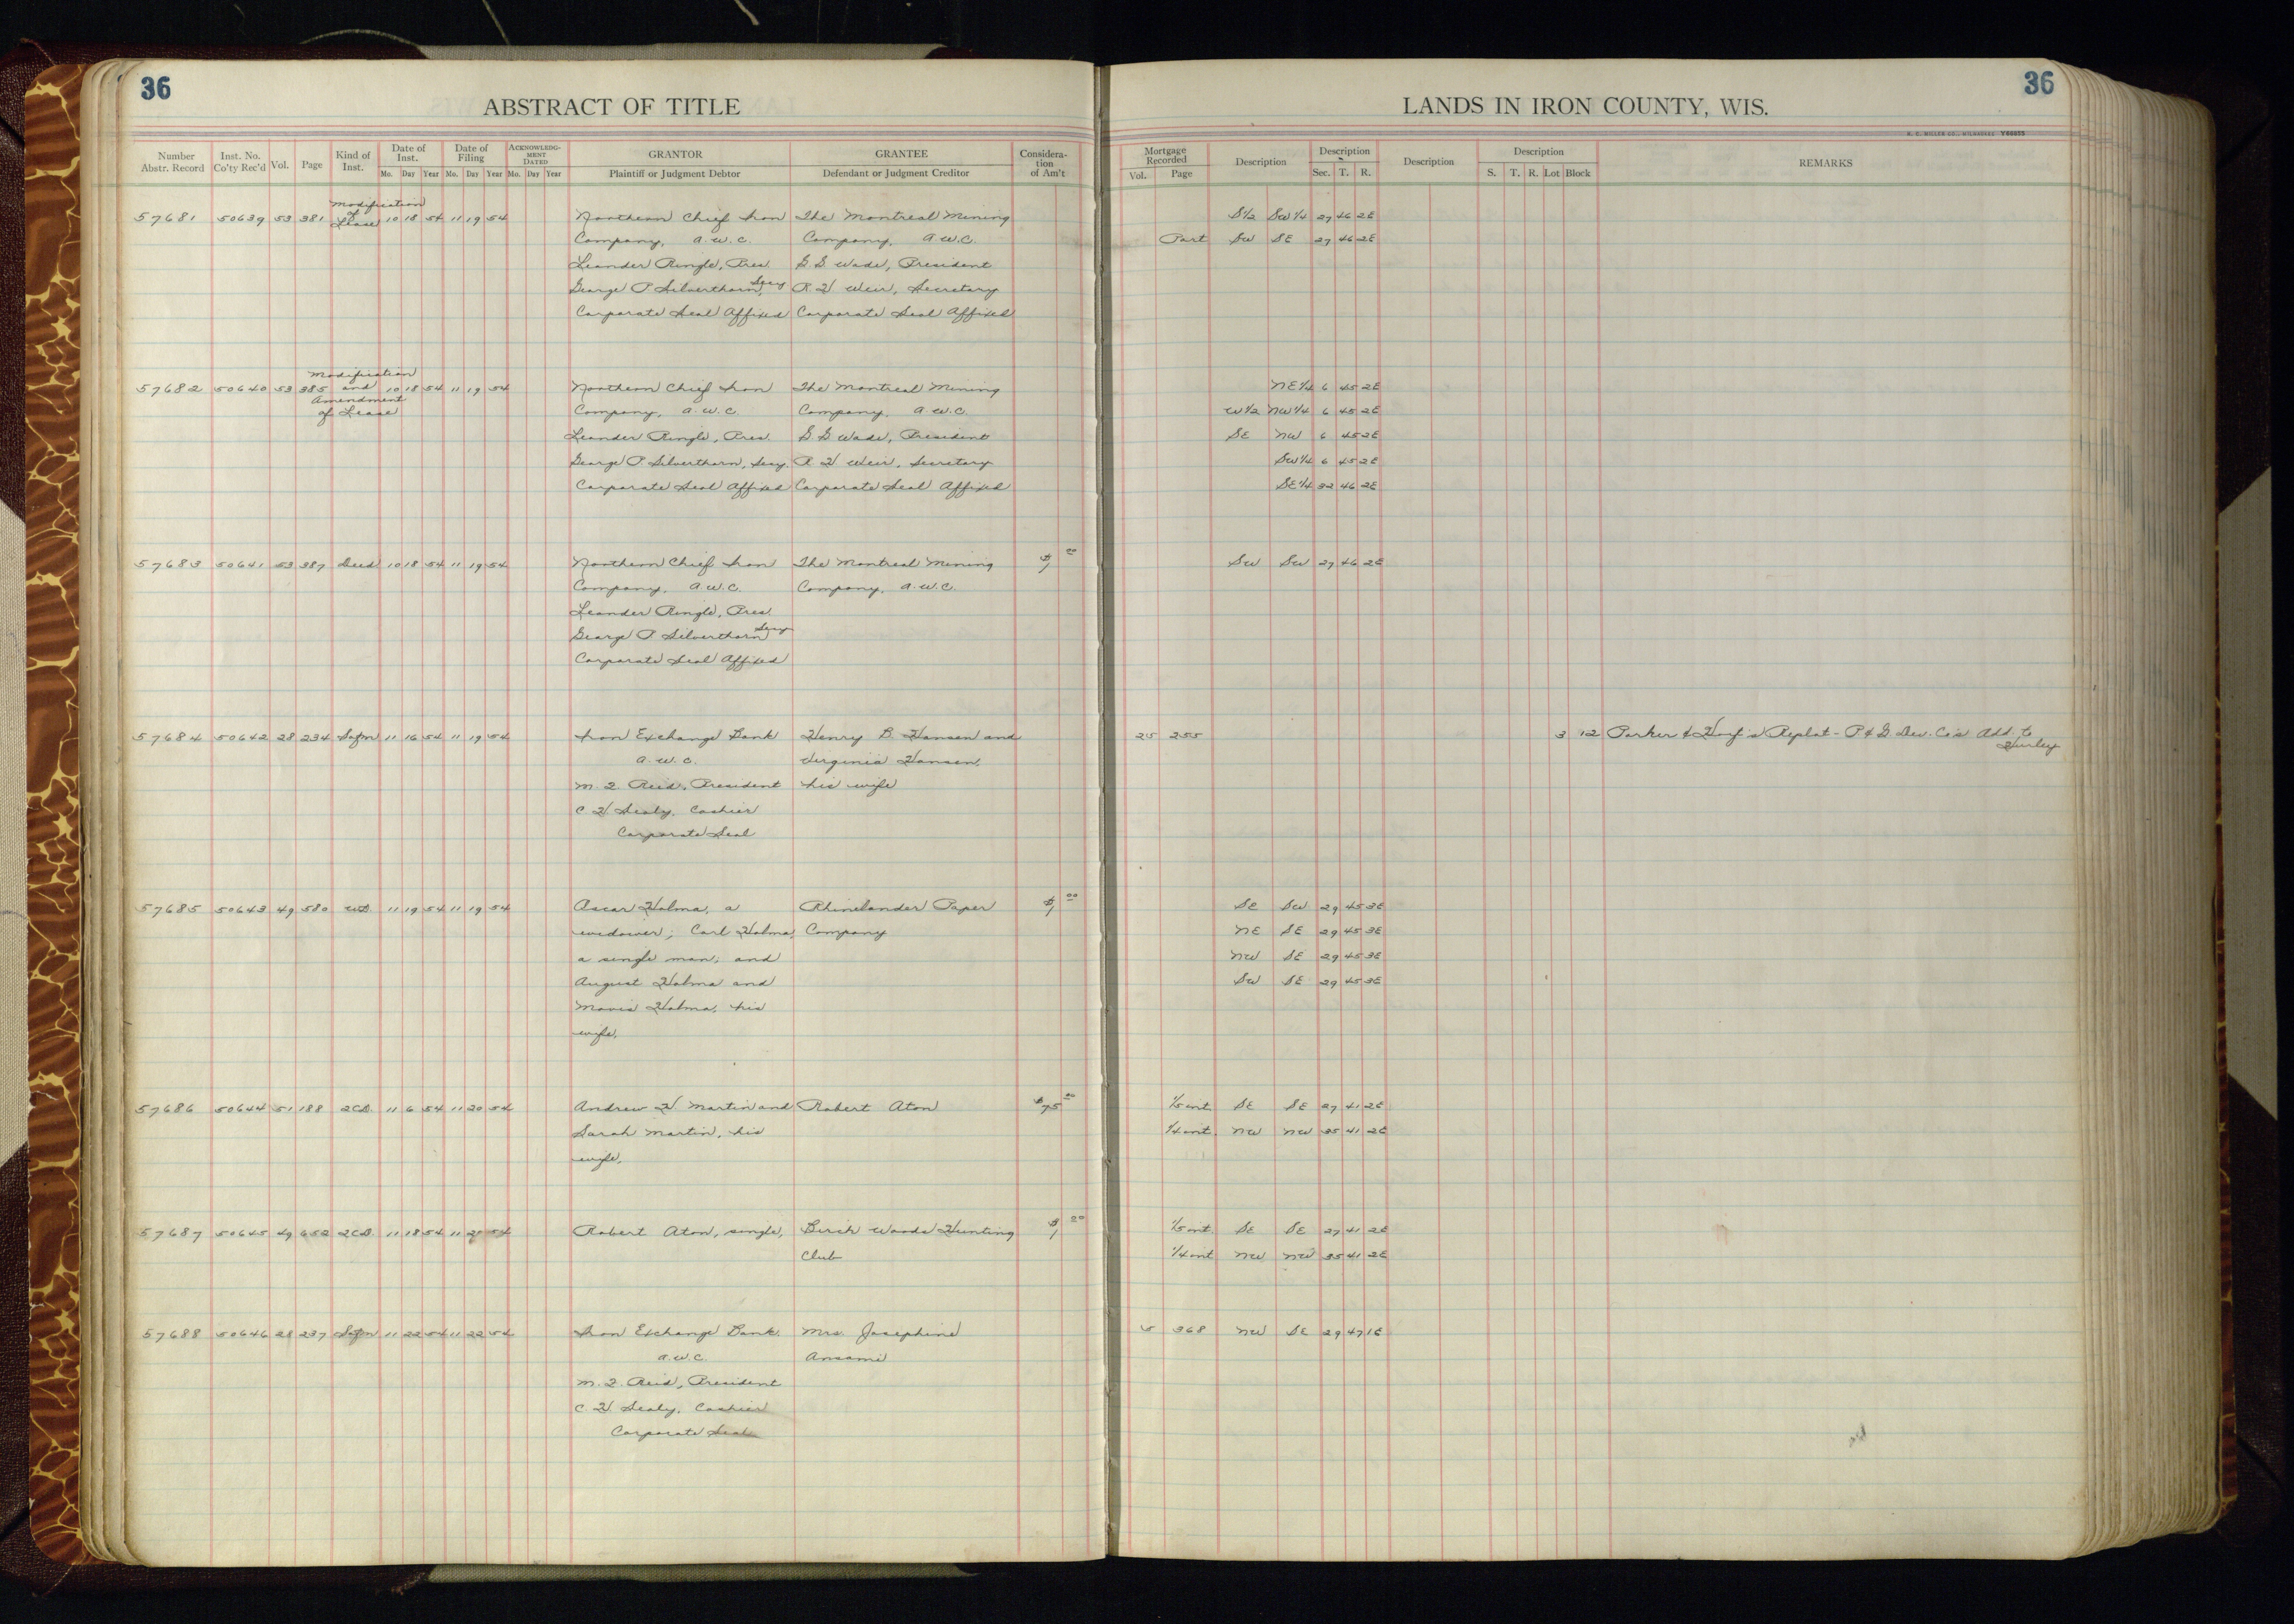 36
ABSTRACT OF TITLE
Number Abstr. Record Inst. No. Co'ty Rec'd Vol. Page Kind of Inst. Date of Inst. Mo. Day Year Date of Filing Mo. Day Year ACKNOWLEDGMENT DATED Mo. Day Year GRANTOR Plaintiff or Judgment Debtor GRANTEE Defendant or Judgment Creditor Consideration of Am't
36
LANDS IN IRON COUNTY, WIS.
H. C. MILLER CO., MILWAUKEE Y66653
Mortgage Recorded Vol. Page Description Description Sec. T. R. Description Description S. T. R. Lot Block REMARKS
57681 50639 53 381 Modification of Lease 10 18 54 11 19 54 Northern Chief Iron The Montreal Mining S1/2 SW1/4 27 46 2E
Company, a.w.c. Company, a.w.c. Part SW SE 27 46 2E
Leander Ringle, Pres. G. G. Wade, President
George P. Silverthorn, Secy R. H. Weir, Secretary
Corporate Seal Affixed Corporate Seal Affixed
57682 50640 53 385 Modification and Amendment of Lease 10 18 54 11 19 54 Northern Chief Iron The Montreal Mining NE1/4 6 45 2E
Company, a.w.c. Company, a.w.c. W1/2 NW1/4 6 45 2E
Leander Ringle, Pres. G. G. Wade, President SE NW 6 45 2E
George P. Silverthorn, Secy. R. H. Weir, Secretary SW1/4 6 45 2E
Corporate Seal Affixed Corporate Seal Affixed SE1/4 32 46 2E
57683 50641 53 387 Deed 10 18 54 11 19 54 Northern Chief Iron The Montreal Mining $1 00 SW SW 27 46 2E
Company, a.w.c. Company, a.w.c.
Leander Ringle, Pres.
George P. Silverthorn, Secy
Corporate Seal Affixed
57684 50642 28 234 Satfn 11 16 54 11 19 54 Iron Exchange Bank Henry B. Hansen and 25 255 3 12 Parker & Replat - P & G. Dev. Co's Add. to Hurley
a.w.c. Virginia Hansen,
M. J. Reid, President his wife
C. H. Sealy, Cashier
Corporate Seal
57685 50643 49 580 W.D. 11 19 54 11 19 54 Oscar Holma, a Rhinelander Paper $1 00 SE SW 29 45 3E
widower; Carl Holma, Company NE SE 29 45 3E
a single man; and NW SE 29 45 3E
August Holma and SW SE 29 45 3E
Mavis Holma, his
wife.
57686 50644 51 188 2CD. 11 6 54 11 20 54 Andrew H. Martin and Robert Aton $75 00 1/5 int. SE SE 27 41 2E
Sarah Martin, his 1/4 int. NW NW 35 41 2E
wife.
57687 50645 49 652 2CD. 11 18 54 11 20 54 Robert Aton, single, Birch Woods Hunting $1 00 1/5 int. SE SE 27 41 2E
Club 1/4 int NW NW 35 41 2E
57688 50646 28 237 Satfn 11 22 54 11 22 54 Iron Exchange Bank Mrs. Josephine 5 368 NW SE 29 47 1E
a.w.c. Ansami
M. J. Reid, President
C. H. Sealy, Cashier
Corporate Seal